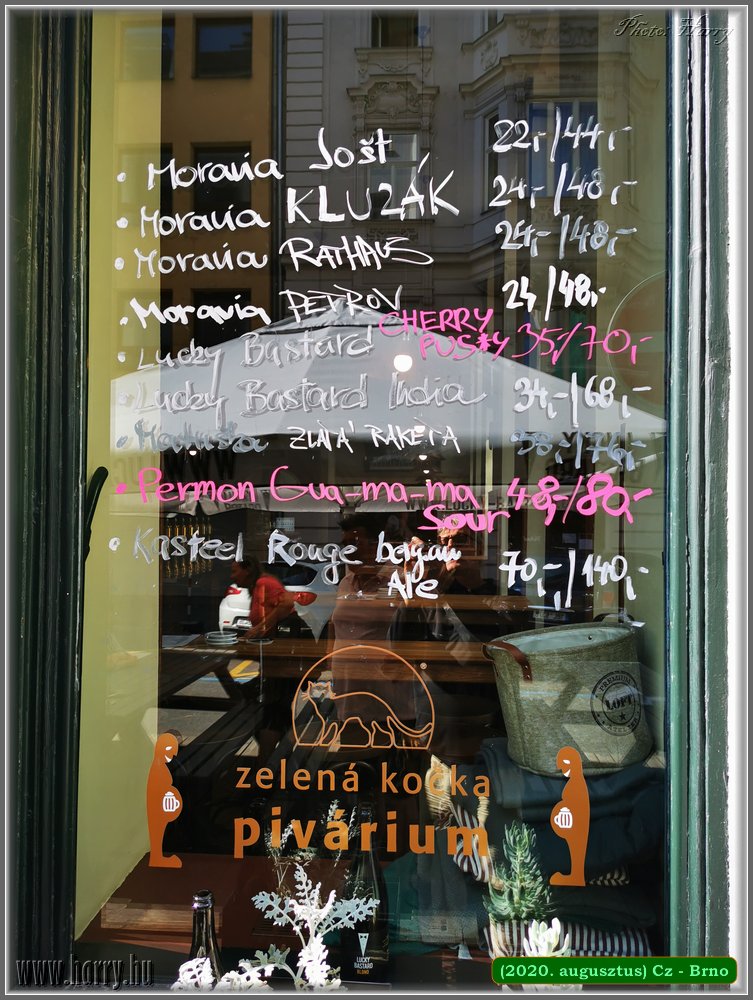 Photo: Harry
• Moravia Jošt 22,-/44,-
• Moravia KLUZÁK 24,-/48,-
• Moravia RATHAUS 24,-/48,-
• Moravia PETROV 24/48,-
• Lucky Bastard CHERRY
PUS*Y 35,/70,-
• Lucky Bastard India 34,-/68,-
• Matuška ZLATÁ RAKETA 38,-/76,-
• Permon Gua-ma-ma 48,-/80,-
Sour
• Kasteel Rouge belgian 70,-/140,-
Ale
PREMIUM
LOFT
®
zelená kočka
pivárium
LUCKY
BASTARD
BLOND
www.harry.hu
(2020. augusztus) Cz - Brno